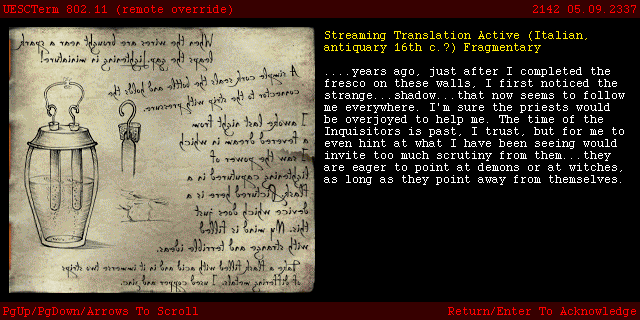 UESCTerm 802.11 (remote override)
2142 05.09.2337
When the wires are brought near a spark
leaps the gap. Lightening in miniature!
A simple cork seals the bottle and holds the
connector to the strip with pressure.
I awoke last night from
a fevered dream in which
I saw the power of
lightening captured in a
flask. Pictured here is a
device which does just
this. My mind is filled
with strange and terrible ideas.
Take a flask filled with acid and in it immerse two strips
of differing metals. I used copper and zinc.
Streaming Translation Active (Italian,
antiquary 16th c.?) Fragmentary
....years ago, just after I completed the
fresco on these walls, I first noticed the
strange...shadow...that now seems to follow
me everywhere. I'm sure the priests would
be overjoyed to help me. The time of the
Inquisitors is past, I trust, but for me to
even hint at what I have been seeing would
invite too much scrutiny from them...they
are eager to point at demons or at witches,
as long as they point away from themselves.
PgUp/PgDown/Arrows To Scroll
Return/Enter To Acknowledge